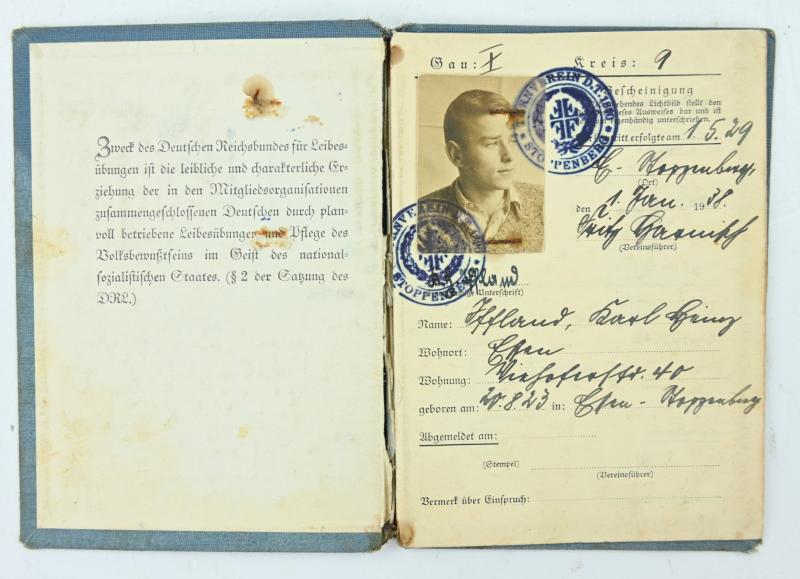 Zweck des Deutschen Reichsbundes für Leibes-
übungen ist die leibliche und charakterliche Er-
ziehung der in den Mitgliedsorganisationen
zusammengeschlossenen Deutschen durch plan-
voll betriebene Leibesübungen und Pflege des
Volksbewußtseins im Geist des national-
sozialistischen Staates. (§ 2 der Satzung des
DRL.)
Gau: X Kreis: 9
TURNVEREIN D.T. 1890
STOPPENBERG
Bescheinigung
ehendes Lichtbild stellt den
dieses Ausweises dar und ist
eigenhändig unterschrieben.
tritt erfolgte am 1.5.29
E.-Stoppenberg,
(Ort)
den 1. Jan. 1938.
Fritz
(Vereinsführer)
RNVEREIN D.T. 1890
STOPPENBERG
Iffland
ige Unterschrift)
Name: Iffland, Karl Heinz
Wohnort: Essen
Wohnung: Viehoferstr. 40
geboren am: 20.8.23 in: Essen-Stoppenberg
Abgemeldet am:
(Stempel)
(Vereinsführer)
Vermerk über Einspruch: